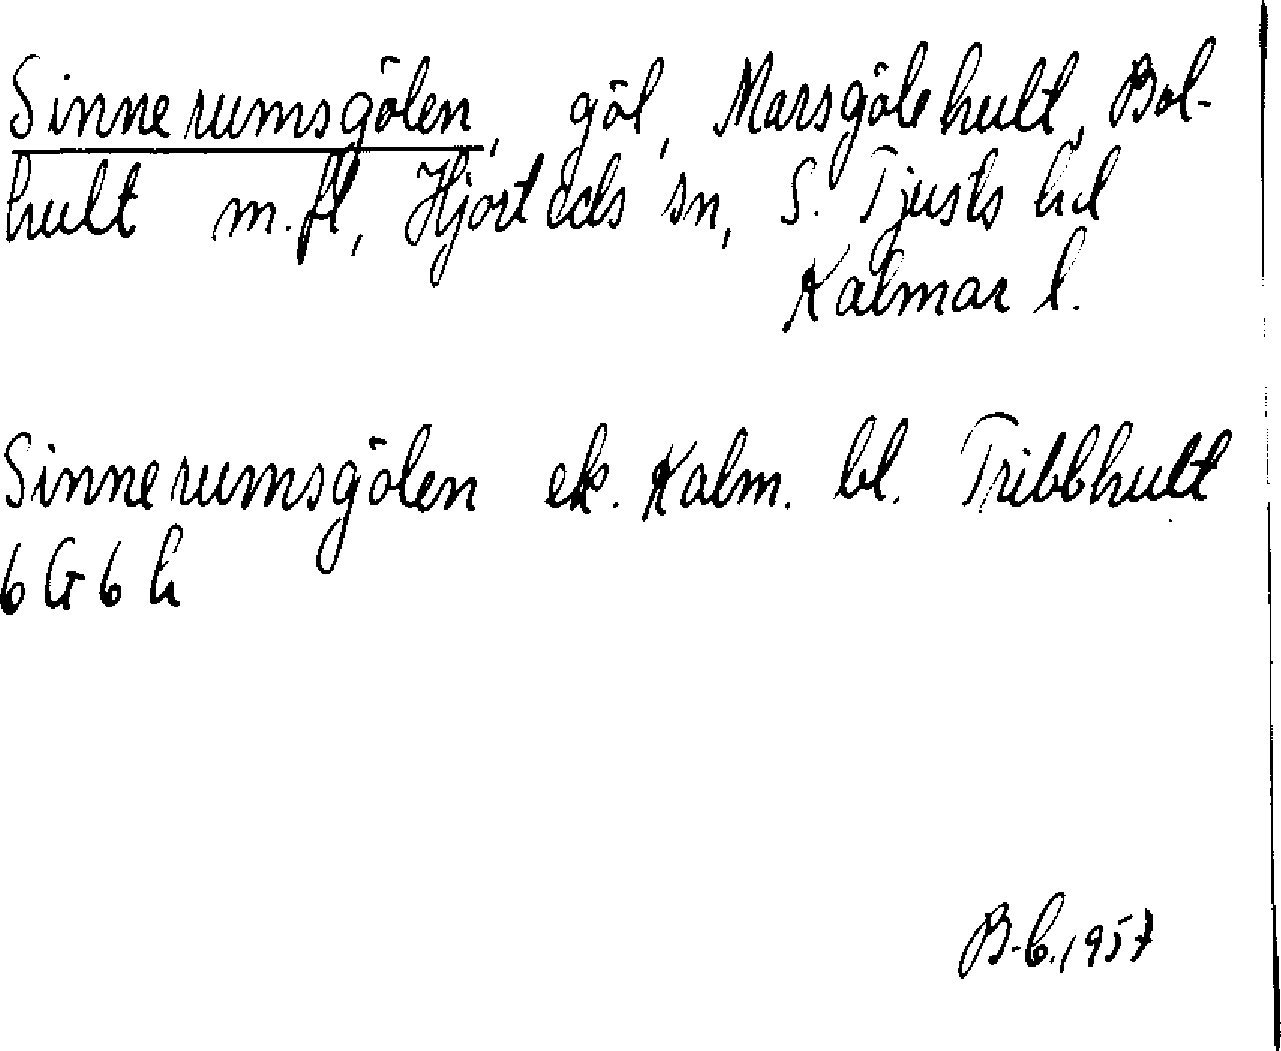 Sinnerumsgölen, göl, Marsgölehult, Bol-
hult m.fl, Hjorteds sn, S. Tjusts hd
Kalmar l.
Sinnerumsgölen ek. Kalm. bl. Tribbhult
6 G 6 h
B-b. 1957